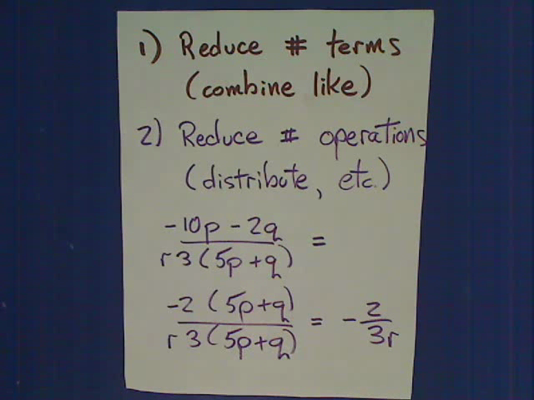 1) Reduce # terms
(combine like)
2) Reduce # operations
(distribute, etc.)
-10p - 2q / r 3 (5p+q) =
-2 (5p+q) / r 3 (5p+q) = - 2 / 3r